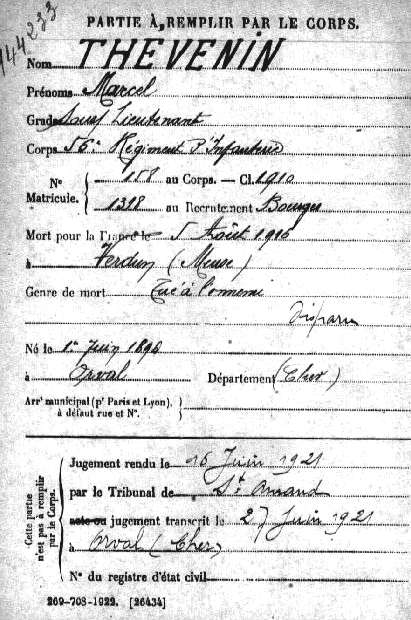 144233
PARTIE À REMPLIR PAR LE CORPS.
Nom THEVENIN
Prénoms Marcel
Grade Sous Lieutenant
Corps Régiment d'Infanterie
Nº Matricule. 158 au Corps. — Cl. 1910
1318 au Recrutement Bourges
Mort pour la France le 5 Août 1916
à Verdun (Meuse)
Genre de mort Tué à l'ennemi
Disparu
Né le 1er Juin
à Orval Département (Cher)
Arrt municipal (pr Paris et Lyon),
à défaut rue et Nº.
Cette partie
n'est pas à remplir
par le Corps.
Jugement rendu le 16 Juin 1921
par le Tribunal de St Amand
acte ou jugement transcrit le 27 Juin 1921
à Orval (Cher)
Nº du registre d'état civil
269-708-1922. [26434]